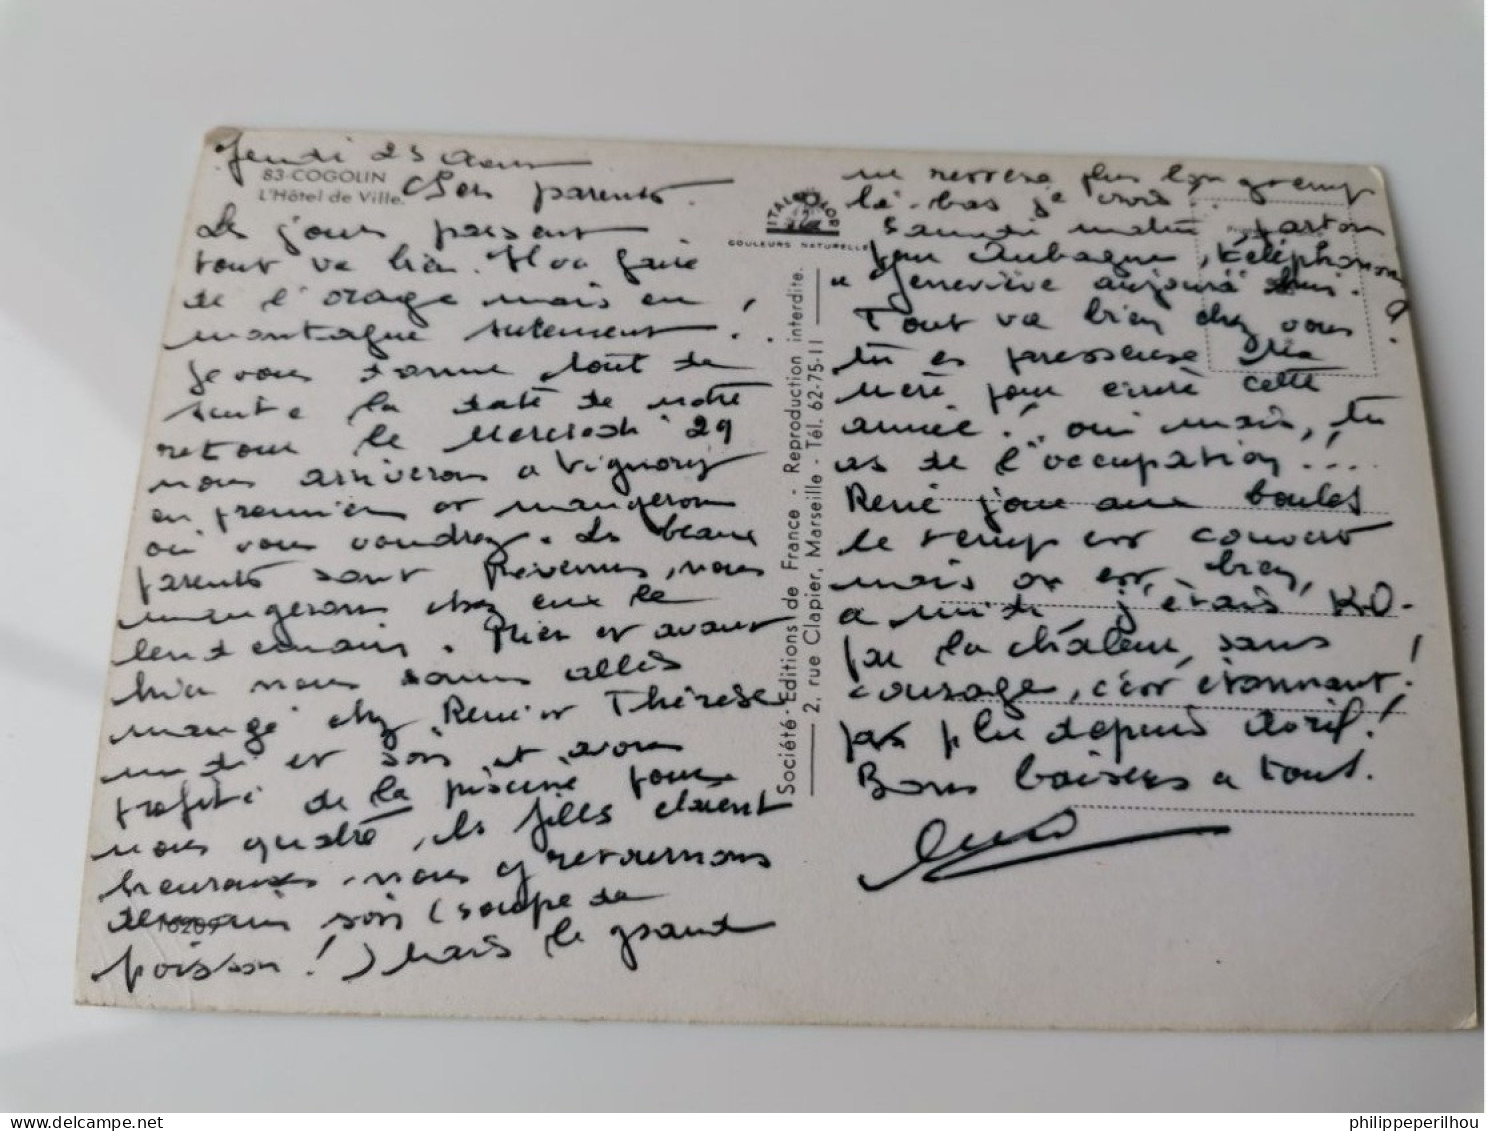 Jeudi 23 Aout
83-COGOLIN
L'Hôtel de Ville.
Chers parents.
Les jours passent
tout va bien. Il va faire
de l'orage mais en
montagne seulement.
Je vous donne tout de
suite la date de notre
retour le Mercredi 29
nous arriverons a Vignory
en premier et mangerons
où vous voudrez. Les beaux
parents sont prévenus, nous
mangerons chez eux le
lendemain. Hier et avant
hier nous sommes allés
mangé chez René et Thérèse
midi et soir et avons
profité de la piscine tous
nous quatre, les filles étaient
heureuses. nous y retournons
demain soir (soupe de
16209
poisson!) Mais le grand
ne restera plus longtemps
là-bas je crois.
Samedi matin partons
pour Aubagne, téléphonons
a Geneviève aujourd'hui.
Tout va bien chez vous ?
tu es paresseuse Ma
mère pour écrire cette
année! oui mais, tu
as de l'occupation! ...
René joue aux boules
le temps est couvert
mais on est bien,
a midi j'étais K.O.
par la chaleur, sans
courage, c'est étonnant!
pas plu depuis Avril!
Bons baisers a tous.
ITALCOLOR
COULEURS NATURELLES
Société - Editions de France - Reproduction interdite.
2, rue Clapier, Marseille - Tél. 62-75-11
www.delcampe.net
philippeperilhou